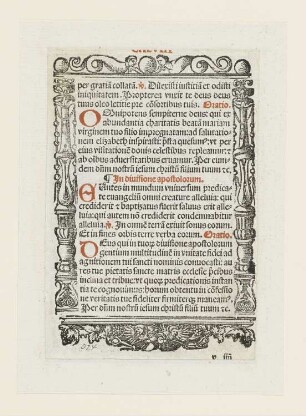 per gratiā collatā. ℣. Dilexisti iusticiā et odisti
iniquitatem. Propterea vnxit te deus deus
tuus oleo leticie pre cōsortibus tuis. Oratio.
OMnipotens sempiterne deus: qui ex
abundantia charitatis beatā mariam
virginem tuo filio impregnatam: ad salutatio
nem elizabeth inspirasti: presta quesumus: vt per
eius visitationē donis celestibus repleamur:
et ab oībus aduersitatibus eruamur. Per eum
dem dn̄m nostrū iesum christū filium tuum ꝛc.
¶ In diuisione apostolorum.
EUntes in mundum vniuersum predica
te euangeliū omni creature alleluia: qui
crediderit et baptizatus fuerit saluus erit alle
luia: qui autem nō crediderit condemnabitur
alleluia. ℣. In omnē terrā exiuit sonus eorum.
Et in fines orbis terre verba eorum. Oratio.
DEus qui in tuorum diuisione apostolorum
gentium multitudinē in vnitate fidei ad
agnitionem tui sancti nominis conuocasti: au
res tue pietatis sancte matris ecclesie precibus
inclina et tribue: vt quos predicationis instan
tia recognouimus: horum obtentu in cōfessio
ne veritatis tue fideliter firmiterque maneam9.
Per dn̄m nostrū iesum christū filiū tuum ꝛc.